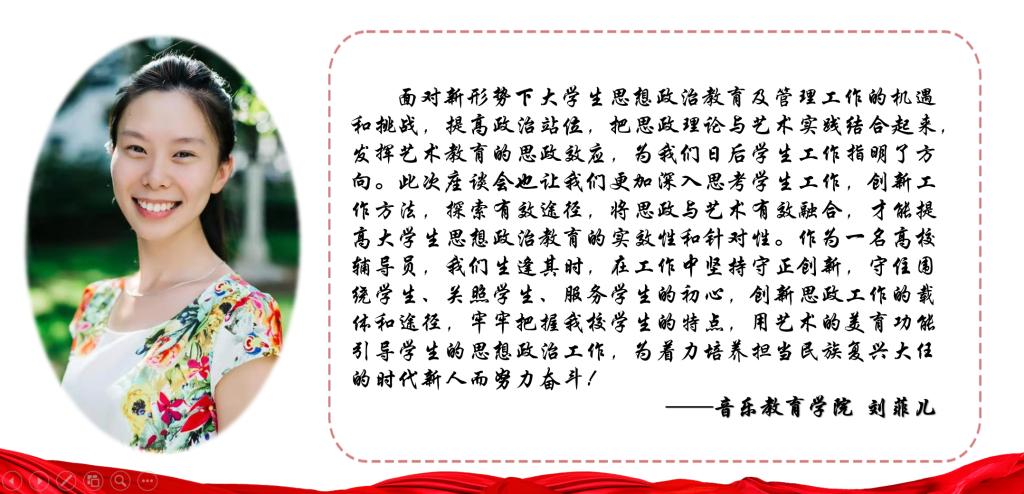 面对新形势下大学生思想政治教育及管理工作的机遇
和挑战，提高政治站位，把思政理论与艺术实践结合起来，
发挥艺术教育的思政效应，为我们日后学生工作指明了方
向。此次座谈会也让我们更加深入思考学生工作，创新工
作方法，探索有效途径，将思政与艺术有效融合，才能提
高大学生思想政治教育的实效性和针对性。作为一名高校
辅导员，我们生逢其时，在工作中坚持守正创新，守住围
绕学生、关照学生、服务学生的初心，创新思政工作的载
体和途径，牢牢把握我校学生的特点，用艺术的美育功能
引导学生的思想政治工作，为着力培养担当民族复兴大任
的时代新人而努力奋斗！
——音乐教育学院 刘菲儿